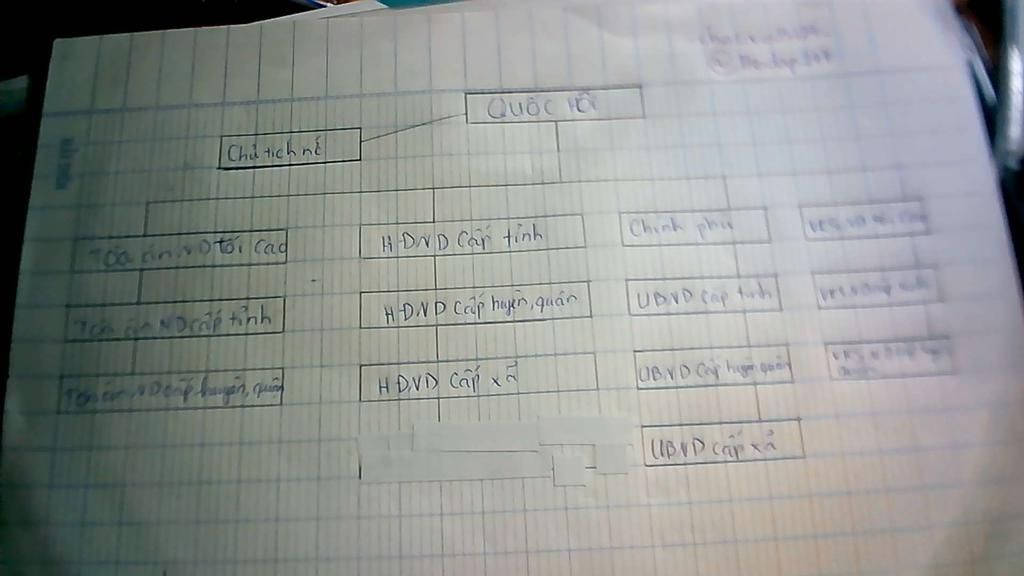 QUỐC HỘI
Chủ tịch nc
Tòa án ND tối cao
HĐND Cấp tỉnh
Chính phủ
Tòa án ND cấp tỉnh
HĐND Cấp huyện, quận
UBND Cấp tỉnh
Tòa án ND cấp huyện, quận
HĐND Cấp xã
UBND Cấp huyện, quận
UBND Cấp xã